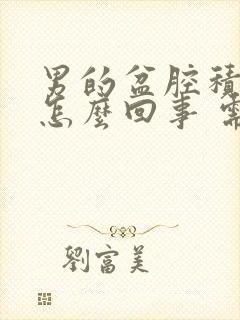 男的盆腔積
怎麼回事 需
劉富美